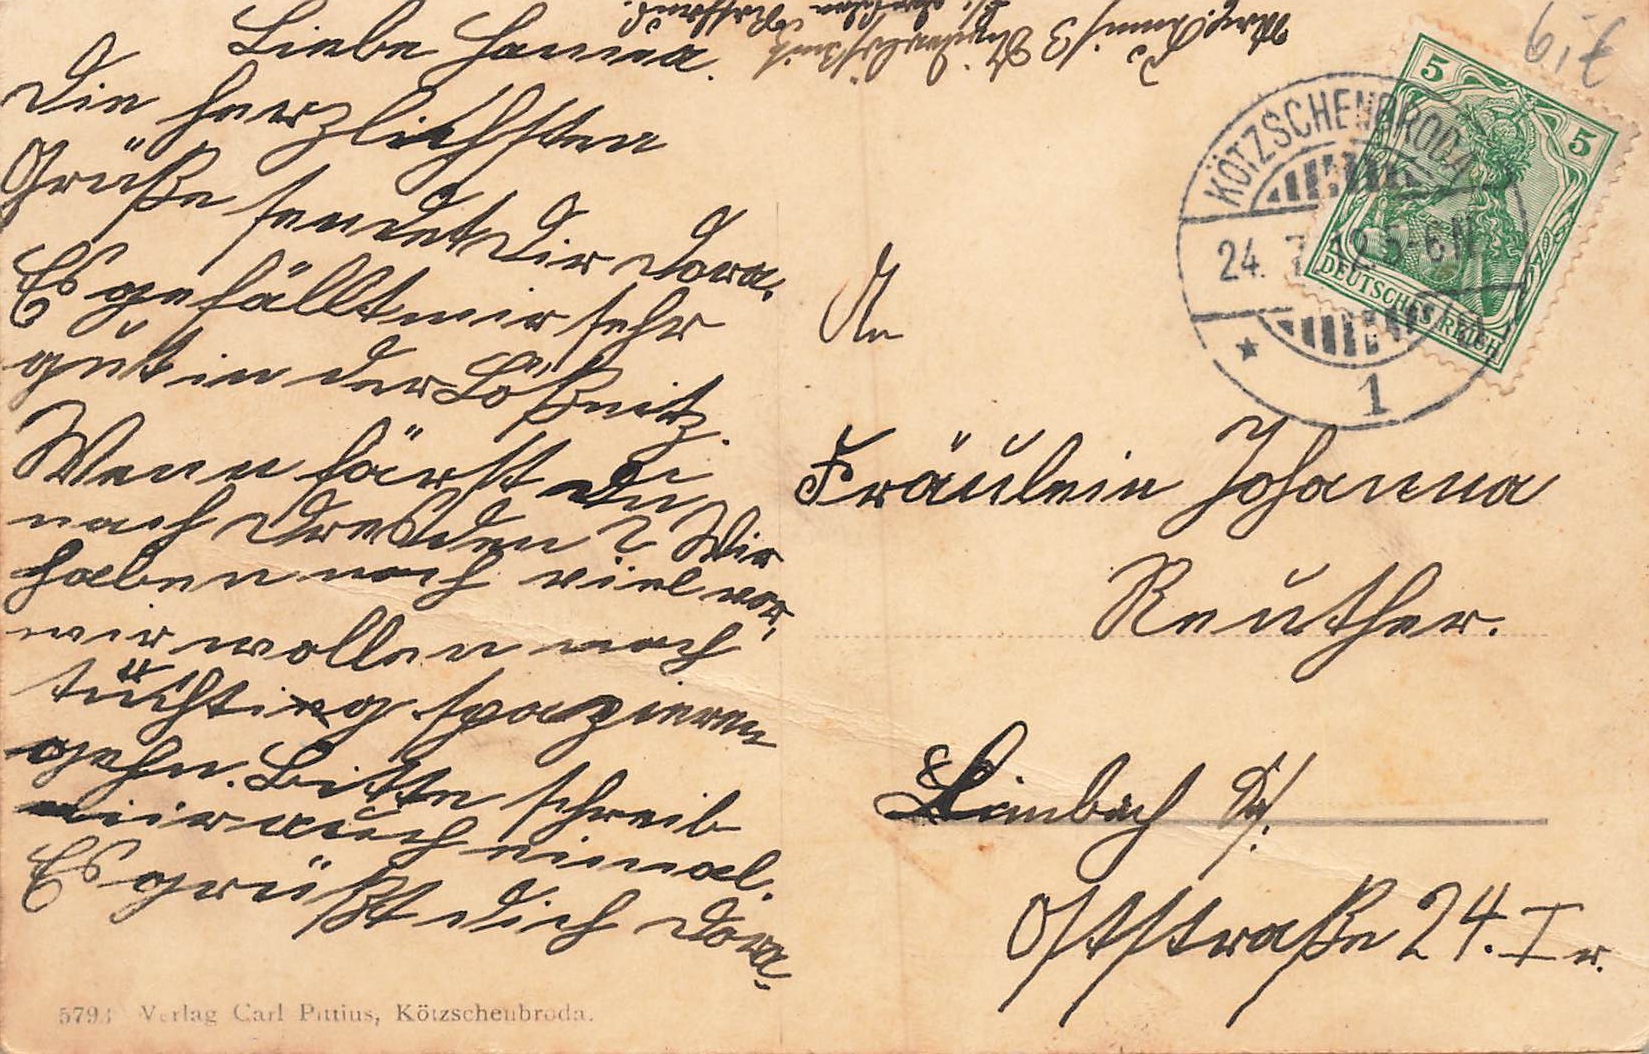 Liebe Hanna.
Die herzlichsten
Grüße sendet Dir Dora.
Es gefällt mir sehr
gut in der Lößnitz.
Wenn färst Du
nach Dresden? Wir
haben noch viel vor,
wir wollen noch
tüchtig spazieren
gehn. Bitte schreib
mir auch einmal.
Es grüßt Dich Dora.
KÖTZSCHENBRODA
24. 7. 12. 5-6 N.
* 1
5 5
DEUTSCHES REICH
6,-€
An
Fräulein Johanna
Reuther.
Limbach S/.
Oststraße 24. I r.
579 Verlag Carl Pittius, Kötzschenbroda.